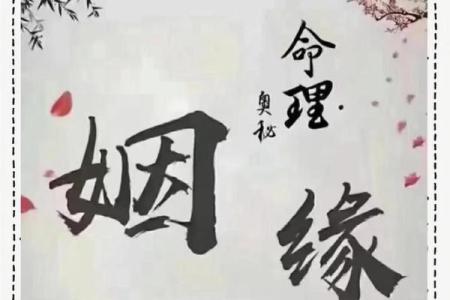 命理
奥秘
姻缘